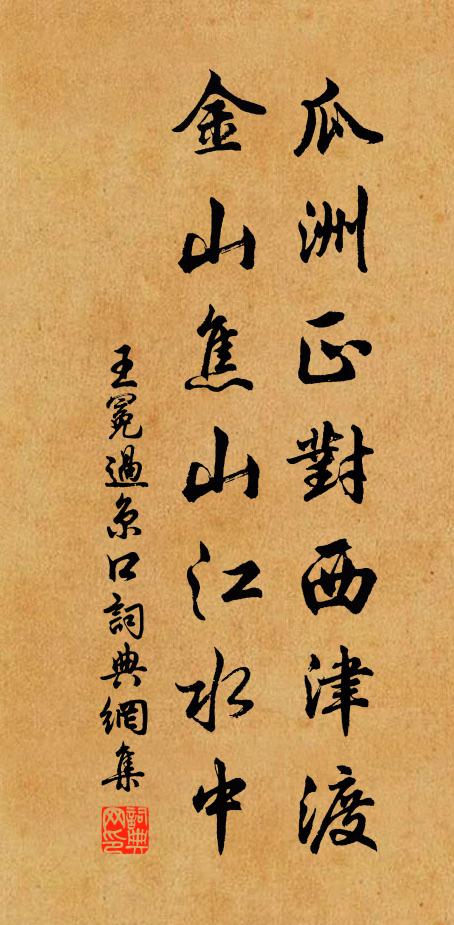 瓜洲正對西津渡
金山焦山江水中
王冕過京口詞典網集
詞典网印